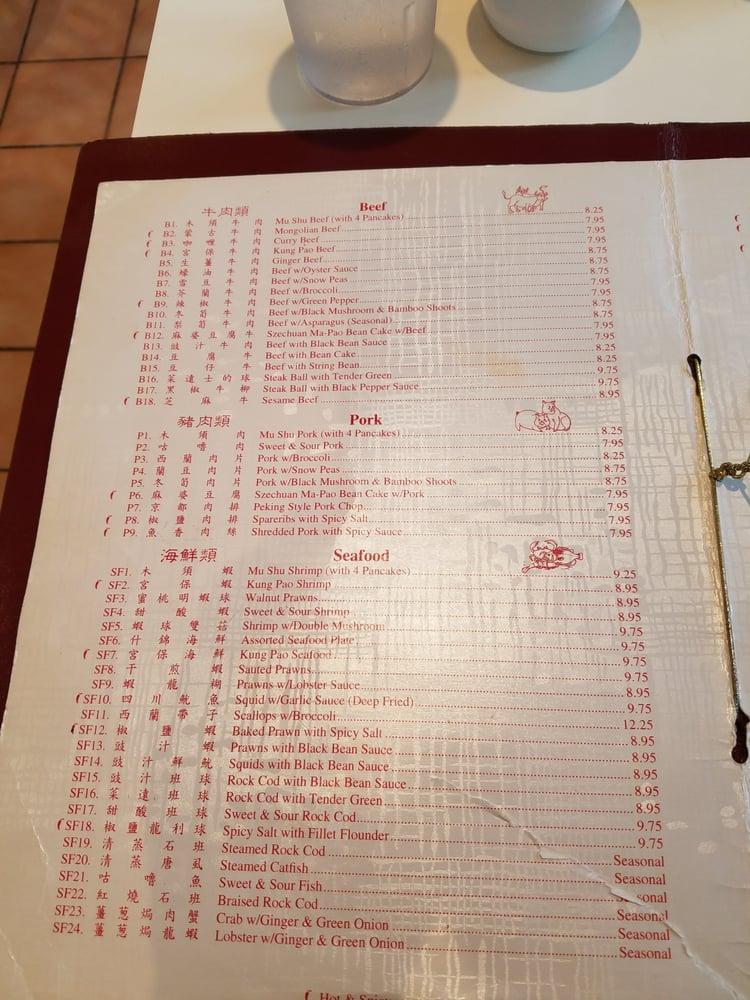 牛肉類 Beef
B1. 木須牛肉 Mu Shu Beef (with 4 Pancakes) 8.25
B2. 蒙古牛肉 Mongolian Beef 7.95
B3. 咖喱牛肉 Curry Beef 7.95
B4. 宮保牛肉 Kung Pao Beef 7.95
B5. 生薑牛肉 Ginger Beef 8.75
B6. 蠔油牛肉 Beef w/Oyster Sauce 8.75
B7. 雪豆牛肉 Beef w/Snow Peas 8.75
B8. 芥蘭牛肉 Beef w/Broccoli 7.95
B9. 辣椒牛肉 Beef w/Green Pepper 7.95
B10. 冬筍牛肉 Beef w/Black Mushroom & Bamboo Shoots 8.75
B11. 梨筍牛肉 Beef w/Asparagus (Seasonal) 8.75
B12. 麻婆豆腐牛 Szechuan Ma-Pao Bean Cake w/Beef 7.95
B13. 豉汁牛肉 Beef with Black Bean Sauce 7.95
B14. 豆腐牛 Beef with Bean Cake 7.95
B15. 豆仔牛 Beef with String Bean 7.95
B16. 菜遠士的球 Steak Ball with Tender Green 9.75
B17. 黑椒牛柳 Steak Ball with Black Pepper Sauce 9.75
B18. 芝麻牛 Sesame Beef 8.95
豬肉類 Pork
P1. 木須肉 Mu Shu Pork (with 4 Pancakes) 8.25
P2. 咕嚕肉 Sweet & Sour Pork 7.95
P3. 西蘭肉片 Pork w/Broccoli 8.25
P4. 蘭豆肉片 Pork w/Snow Peas 8.75
P5. 冬筍肉片 Pork w/Black Mushroom & Bamboo Shoots 8.75
P6. 麻婆豆腐 Szechuan Ma-Pao Bean Cake w/Pork 7.95
P7. 京都肉排 Peking Style Pork Chop 7.95
P8. 椒鹽肉排 Spareribs with Spicy Salt 7.95
P9. 魚香肉絲 Shredded Pork with Spicy Sauce 7.95
海鮮類 Seafood
SF1. 木須蝦 Mu Shu Shrimp (with 4 Pancakes) 9.25
SF2. 宮保蝦 Kung Pao Shrimp 8.95
SF3. 蜜桃明蝦球 Walnut Prawns 8.95
SF4. 甜酸蝦 Sweet & Sour Shrimp 8.95
SF5. 蝦球雙菇 Shrimp w/Double Mushroom 9.75
SF6. 什錦海鮮 Assorted Seafood Plate 9.75
SF7. 宮保海鮮 Kung Pao Seafood 9.75
SF8. 干煎蝦 Sauted Prawns 9.75
SF9. 蝦龍糊 Prawns w/Lobster Sauce 8.95
SF10. 四川魷魚 Squid w/Garlic Sauce (Deep Fried) 9.75
SF11. 西蘭帶子 Scallops w/Broccoli 12.25
SF12. 椒鹽蝦 Baked Prawn with Spicy Salt 8.95
SF13. 豉汁蝦 Prawns with Black Bean Sauce 8.95
SF14. 豉汁鮮魷 Squids with Black Bean Sauce 8.95
SF15. 豉汁班球 Rock Cod with Black Bean Sauce 9.75
SF16. 菜遠班球 Rock Cod with Tender Green 9.75
SF17. 甜酸班球 Sweet & Sour Rock Cod 8.95
SF18. 椒鹽龍利球 Spicy Salt with Fillet Flounder 9.75
SF19. 清蒸石班 Steamed Rock Cod Seasonal
SF20. 清蒸唐虱 Steamed Catfish Seasonal
SF21. 咕嚕魚 Sweet & Sour Fish Seasonal
SF22. 紅燒石班 Braised Rock Cod Seasonal
SF23. 薑蔥焗肉蟹 Crab w/Ginger & Green Onion Seasonal
SF24. 薑蔥焗龍蝦 Lobster w/Ginger & Green Onion Seasonal
Hot &